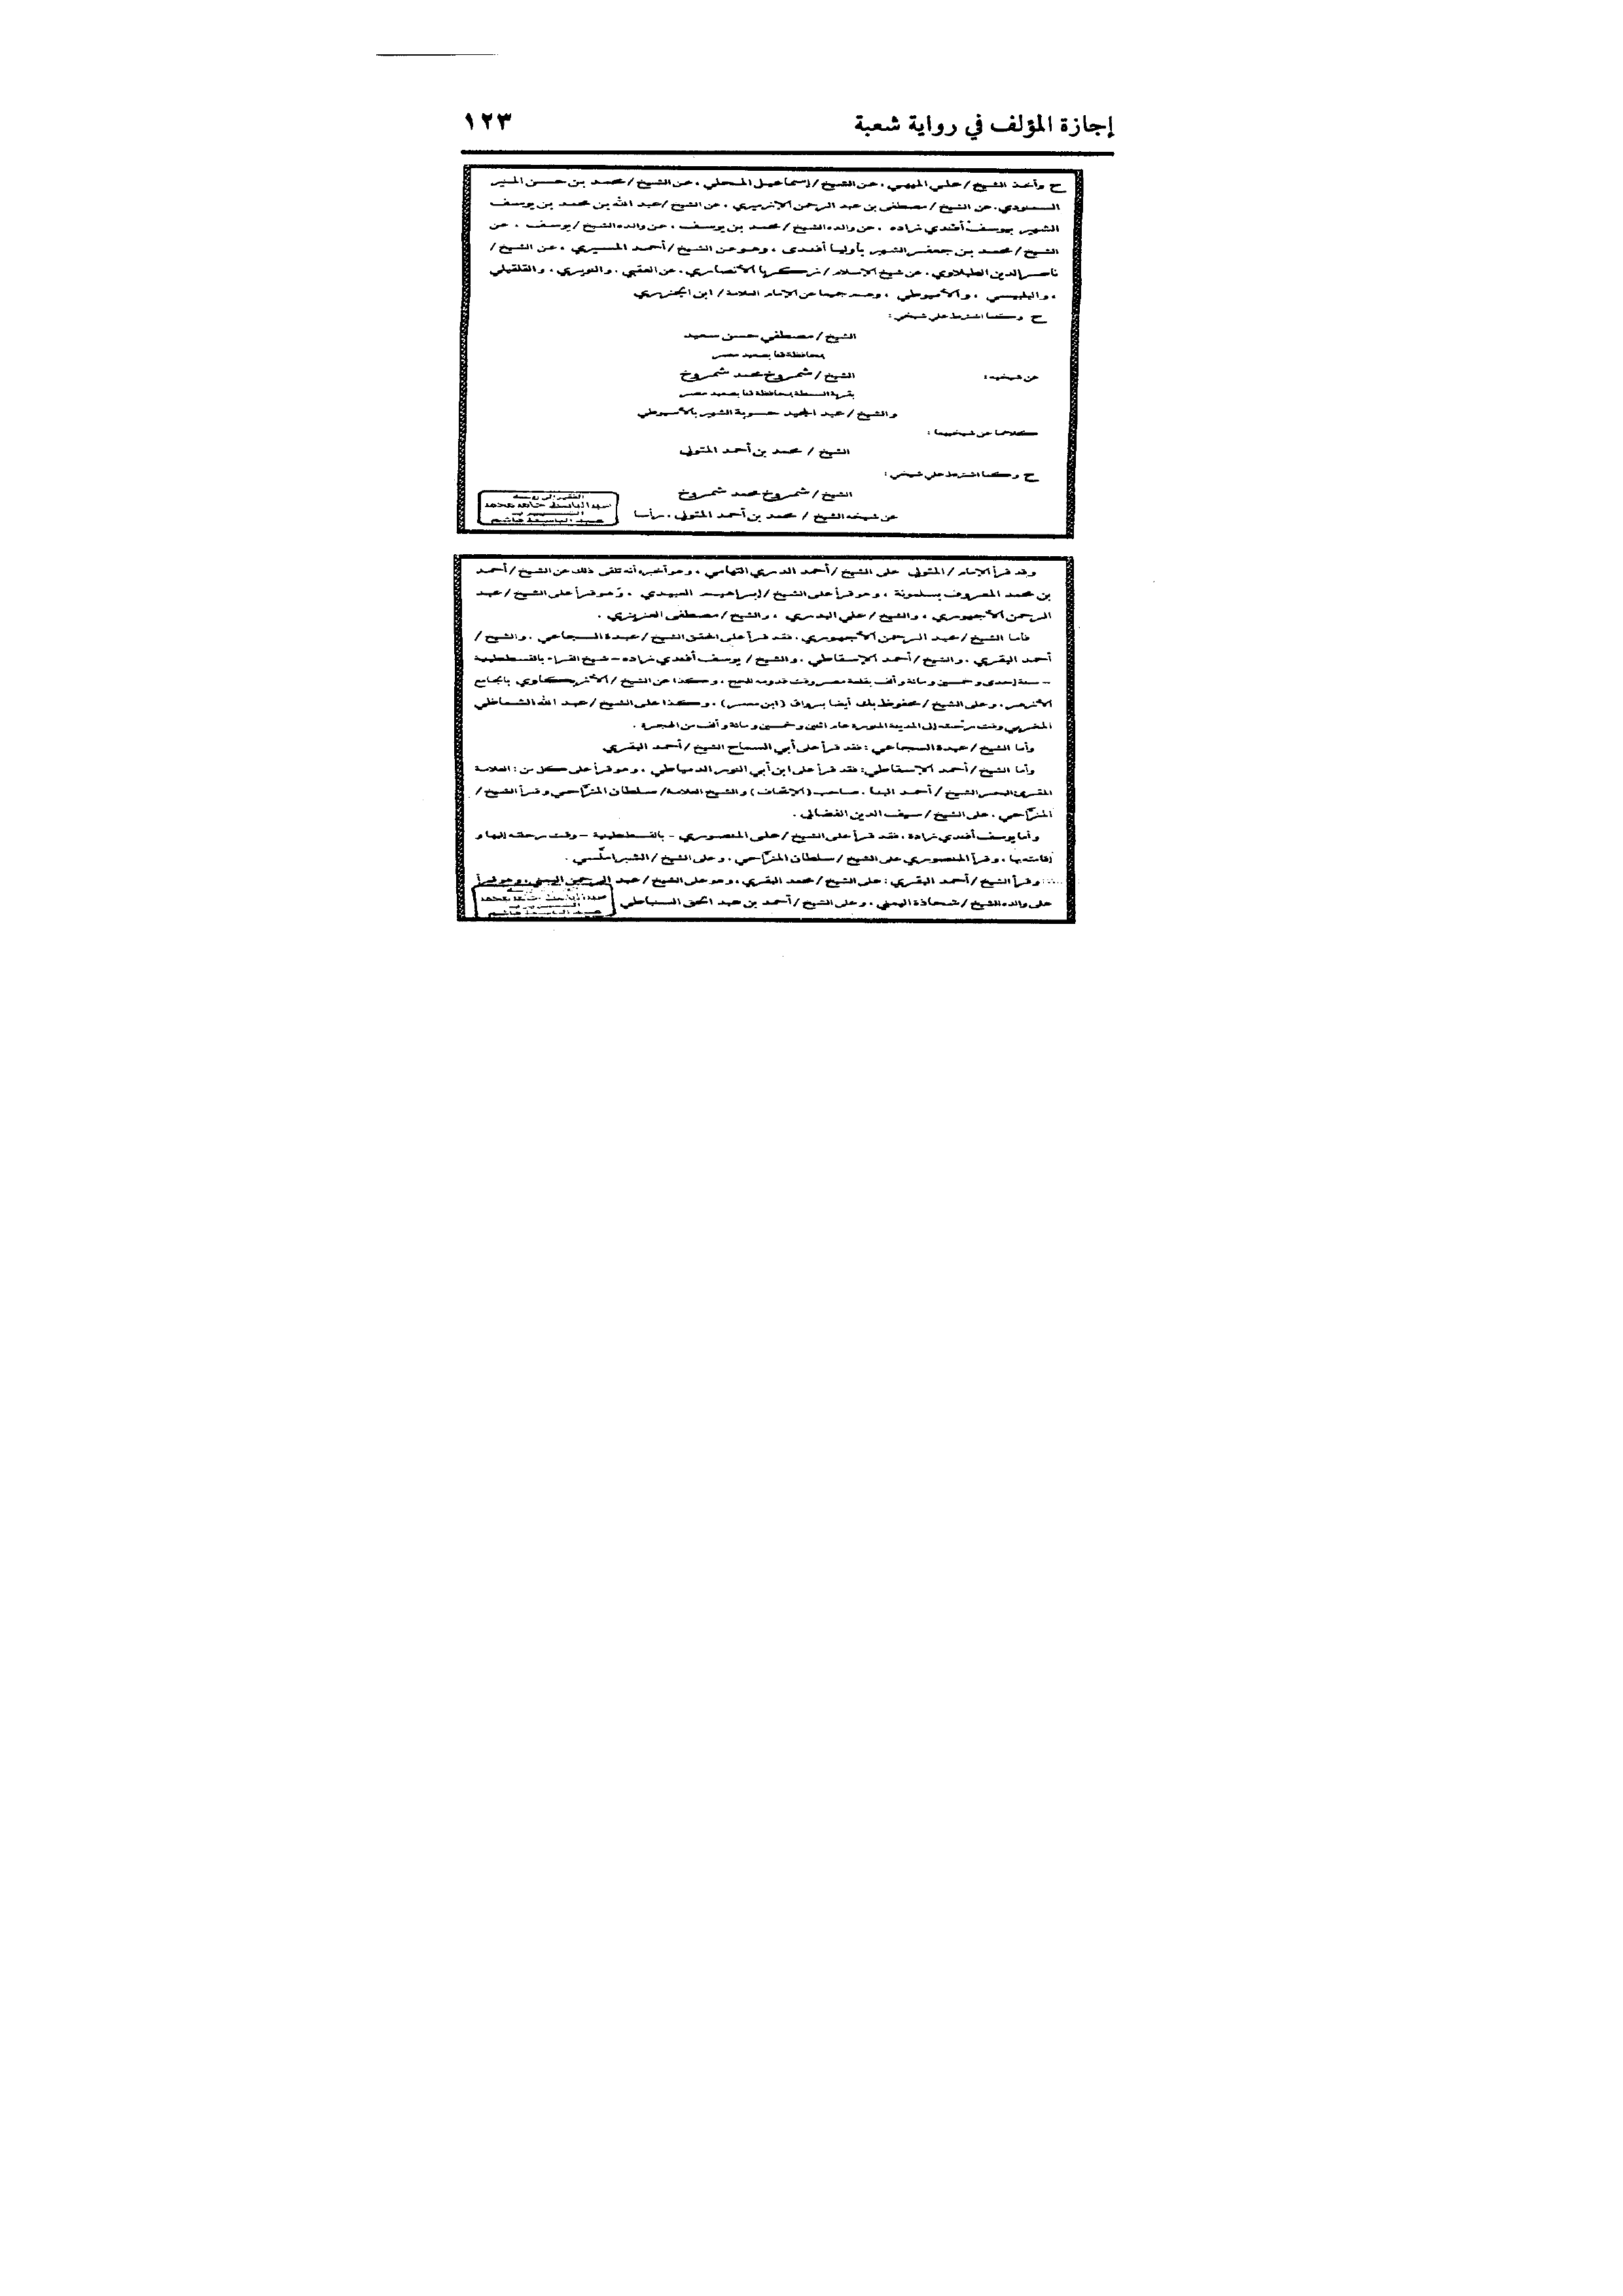 إجازة المؤلف في رواية شعبة ١٢٣
ح وأخذ الشيخ / علي الميهي ، عن الشيخ / إسماعيل المحلي ، عن الشيخ / محمد بن حسن المنير
السمنودي ، عن الشيخ / مصطفى بن عبد الرحمن الإزميري ، عن الشيخ / عبد الله بن محمد بن يوسف
الشهير بيوسف أفندي زاده ، عن والده الشيخ / محمد بن يوسف ، عن والده الشيخ / يوسف ، عن
الشيخ / محمد بن جعفر الشهير بأوليا أفندى ، وهو عن الشيخ / أحمد المسيري ، عن الشيخ /
ناصر الدين الطبلاوي ، عن شيخ الإسلام / زكريا الأنصاري ، عن العقبي ، والنويري ، والقلقيلي
، والبلبيسي ، والأميوطي ، وهم جميعا عن الإمام العلامة / ابن الجزري
ح وكما اشترط علي شيخي :
الشيخ / مصطفي حسن سعيد
بمحافظة قنا بصعيد مصر
عن شيخيه : الشيخ / شمروخ محمد شمروخ
بقرية السمطة بمحافظة قنا بصعيد مصر
والشيخ / عبد المجيد حسوبة الشهير بالأسيوطي
كلاهما عن شيخيهما :
الشيخ / محمد بن أحمد المتولي
ح وكما اشترط علي شيخي :
الشيخ / شمروخ محمد شمروخ
عن شيخه الشيخ / محمد بن أحمد المتولي ، رأسا
الفقير إلى ربه
عبد الباسط حامد محمد
الشهير بـ
عبد الباسط هاشم
وقد قرأ الإمام / المتولي على الشيخ / أحمد الدري التهامي ، وهو أخبره أنه تلقى ذلك عن الشيخ / أحمد
بن محمد المعروف بسلمونة ، وهو قرأ على الشيخ / إبراهيم العبيدي ، وهو قرأ على الشيخ / عبد
الرحمن الأجهوري ، والشيخ / علي البدري ، والشيخ / مصطفى العزيزي .
فأما الشيخ / عبد الرحمن الأجهوري ، فقد قرأ على المحقق الشيخ / عبدة السجاعي ، والشيخ /
أحمد البقري ، والشيخ / أحمد الإسقاطي ، والشيخ / يوسف أفندي زاده – شيخ القراء بالقسطنطينية
– سنة إحدى وخمسين ومائة وألف بقلعة مصر وقت قدومه للحج ، وكذا عن الشيخ / الأزبكاوي بالجامع
الأزهر ، وعلى الشيخ / محفوظ بك أيضا برواق (ابن معمر) ، وكذا على الشيخ / عبد الله الشماطي
المغربي وقت رحلته إلى المدينة المنورة عام اثنين وخمسين ومائة وألف من الهجرة .
وأما الشيخ / عبدة السجاعي : فقد قرأ على أبي السماح الشيخ / أحمد البقري
وأما الشيخ / أحمد الإسقاطي : فقد قرأ على ابن أبي النور الدمياطي ، وهو قرأ على كل من : العلامة
المقرئ البحر الشيخ / أحمد البنا ، صاحب (الإتحاف) والشيخ العلامة / سلطان المزّاحي وقرأ الشيخ /
المزّاحي ، على الشيخ / سيف الدين الفضالي .
وأما يوسف أفندي زادة ، فقد قرأ على الشيخ / على المنصوري – بالقسطنطينية – وقت رحلته إليها و
إقامته بها ، وقرأ المنصوري على الشيخ / سلطان المزّاحي ، وعلى الشيخ / الشبراملّسي .
وقرأ الشيخ / أحمد البقري : على الشيخ / محمد البقري ، وهو على الشيخ / عبد الرحمن اليمني ، وهو قرأ
على والده الشيخ / شحاذة اليمني ، وعلى الشيخ / أحمد بن عبد الحق السنباطي
عبد الباسط حامد محمد
الشهير بـ
عبد الباسط هاشم